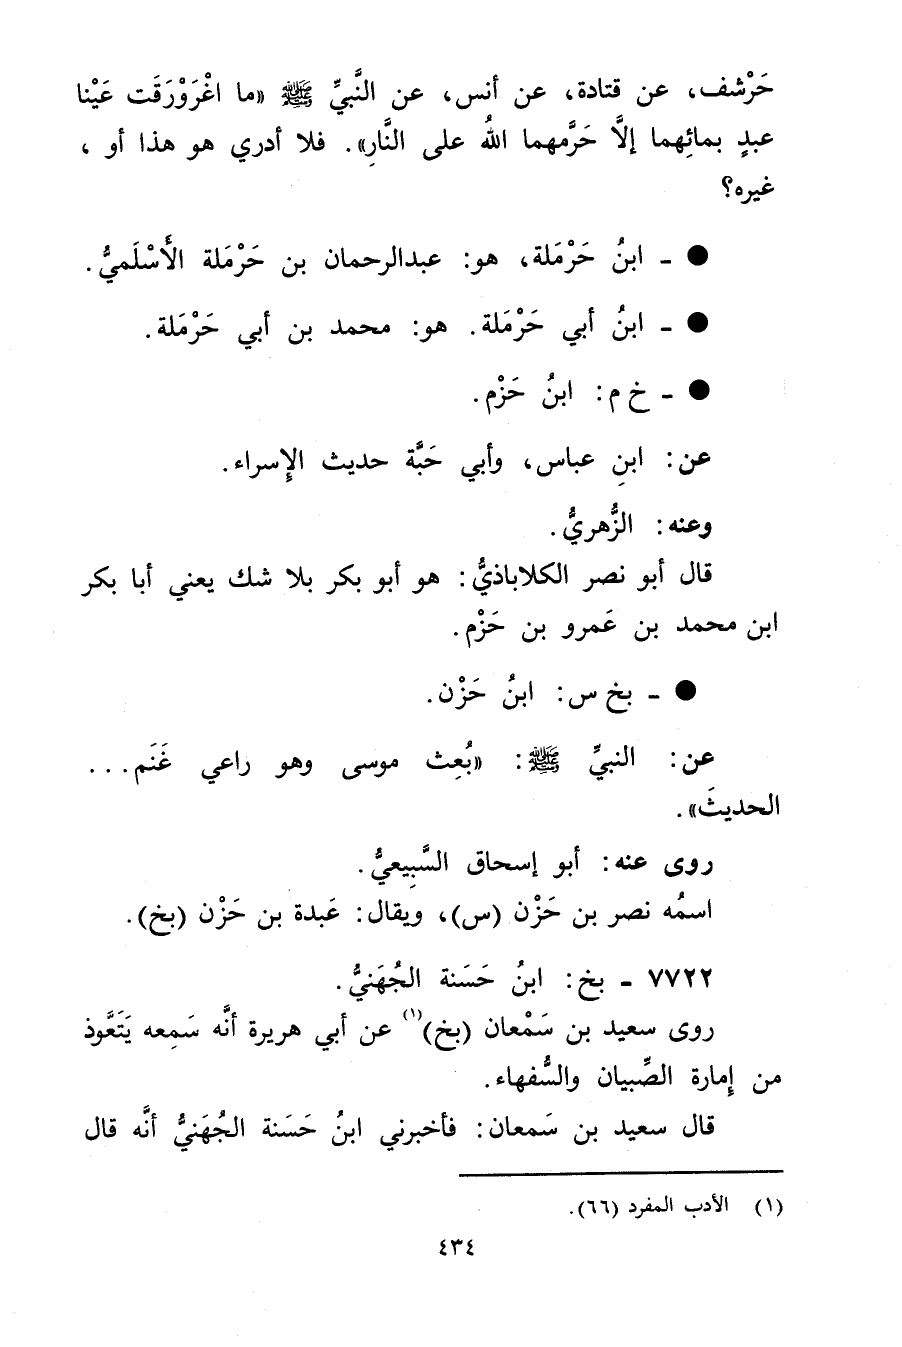 حَرْشف، عن قتادة، عن أنس، عن النَّبيِّ ﷺ «ما اغْرَوْرَقَت عَيْنا
عبدٍ بمائِهما إلَّا حَرَّمهما اللهُ على النَّارِ». فلا أدري هو هذا أو ،
غيره؟
● ـ ابنُ حَرْمَلة، هو: عبدالرحمان بن حَرْمَلة الأَسْلَميُّ.
● ـ ابنُ أبي حَرْمَلة. هو: محمد بن أبي حَرْمَلة.
● ـ خ م: ابنُ حَزْم.
عن: ابنِ عباس، وأبي حَبَّة حديث الإِسراء.
وعنه: الزُّهريُّ.
قال أبو نصر الكلاباذيُّ: هو أبو بكر بلا شك يعني أبا بكر
ابن محمد بن عَمرو بن حَزْم.
● ـ بخ س: ابنُ حَزْن.
عن: النبيِّ ﷺ: «بُعِث موسى وهو راعي غَنَم...
الحديثَ».
روى عنه: أبو إسحاق السَّبِيعيُّ.
اسمُه نصر بن حَزْن (س)، ويقال: عَبدة بن حَزْن (بخ).
٧٧٢٢ ـ بخ: ابنُ حَسَنة الجُهَنيُّ.
روى سعيد بن سَمْعان (بخ)(١) عن أبي هريرة أنَّه سَمِعه يَتَعَّوذ
من إِمارة الصِّبيان والسُّفهاء.
قال سعيد بن سَمعان: فأخبرني ابنُ حَسَنة الجُهَنيُّ أنَّه قال
(١) الأدب المفرد (٦٦).
٤٣٤